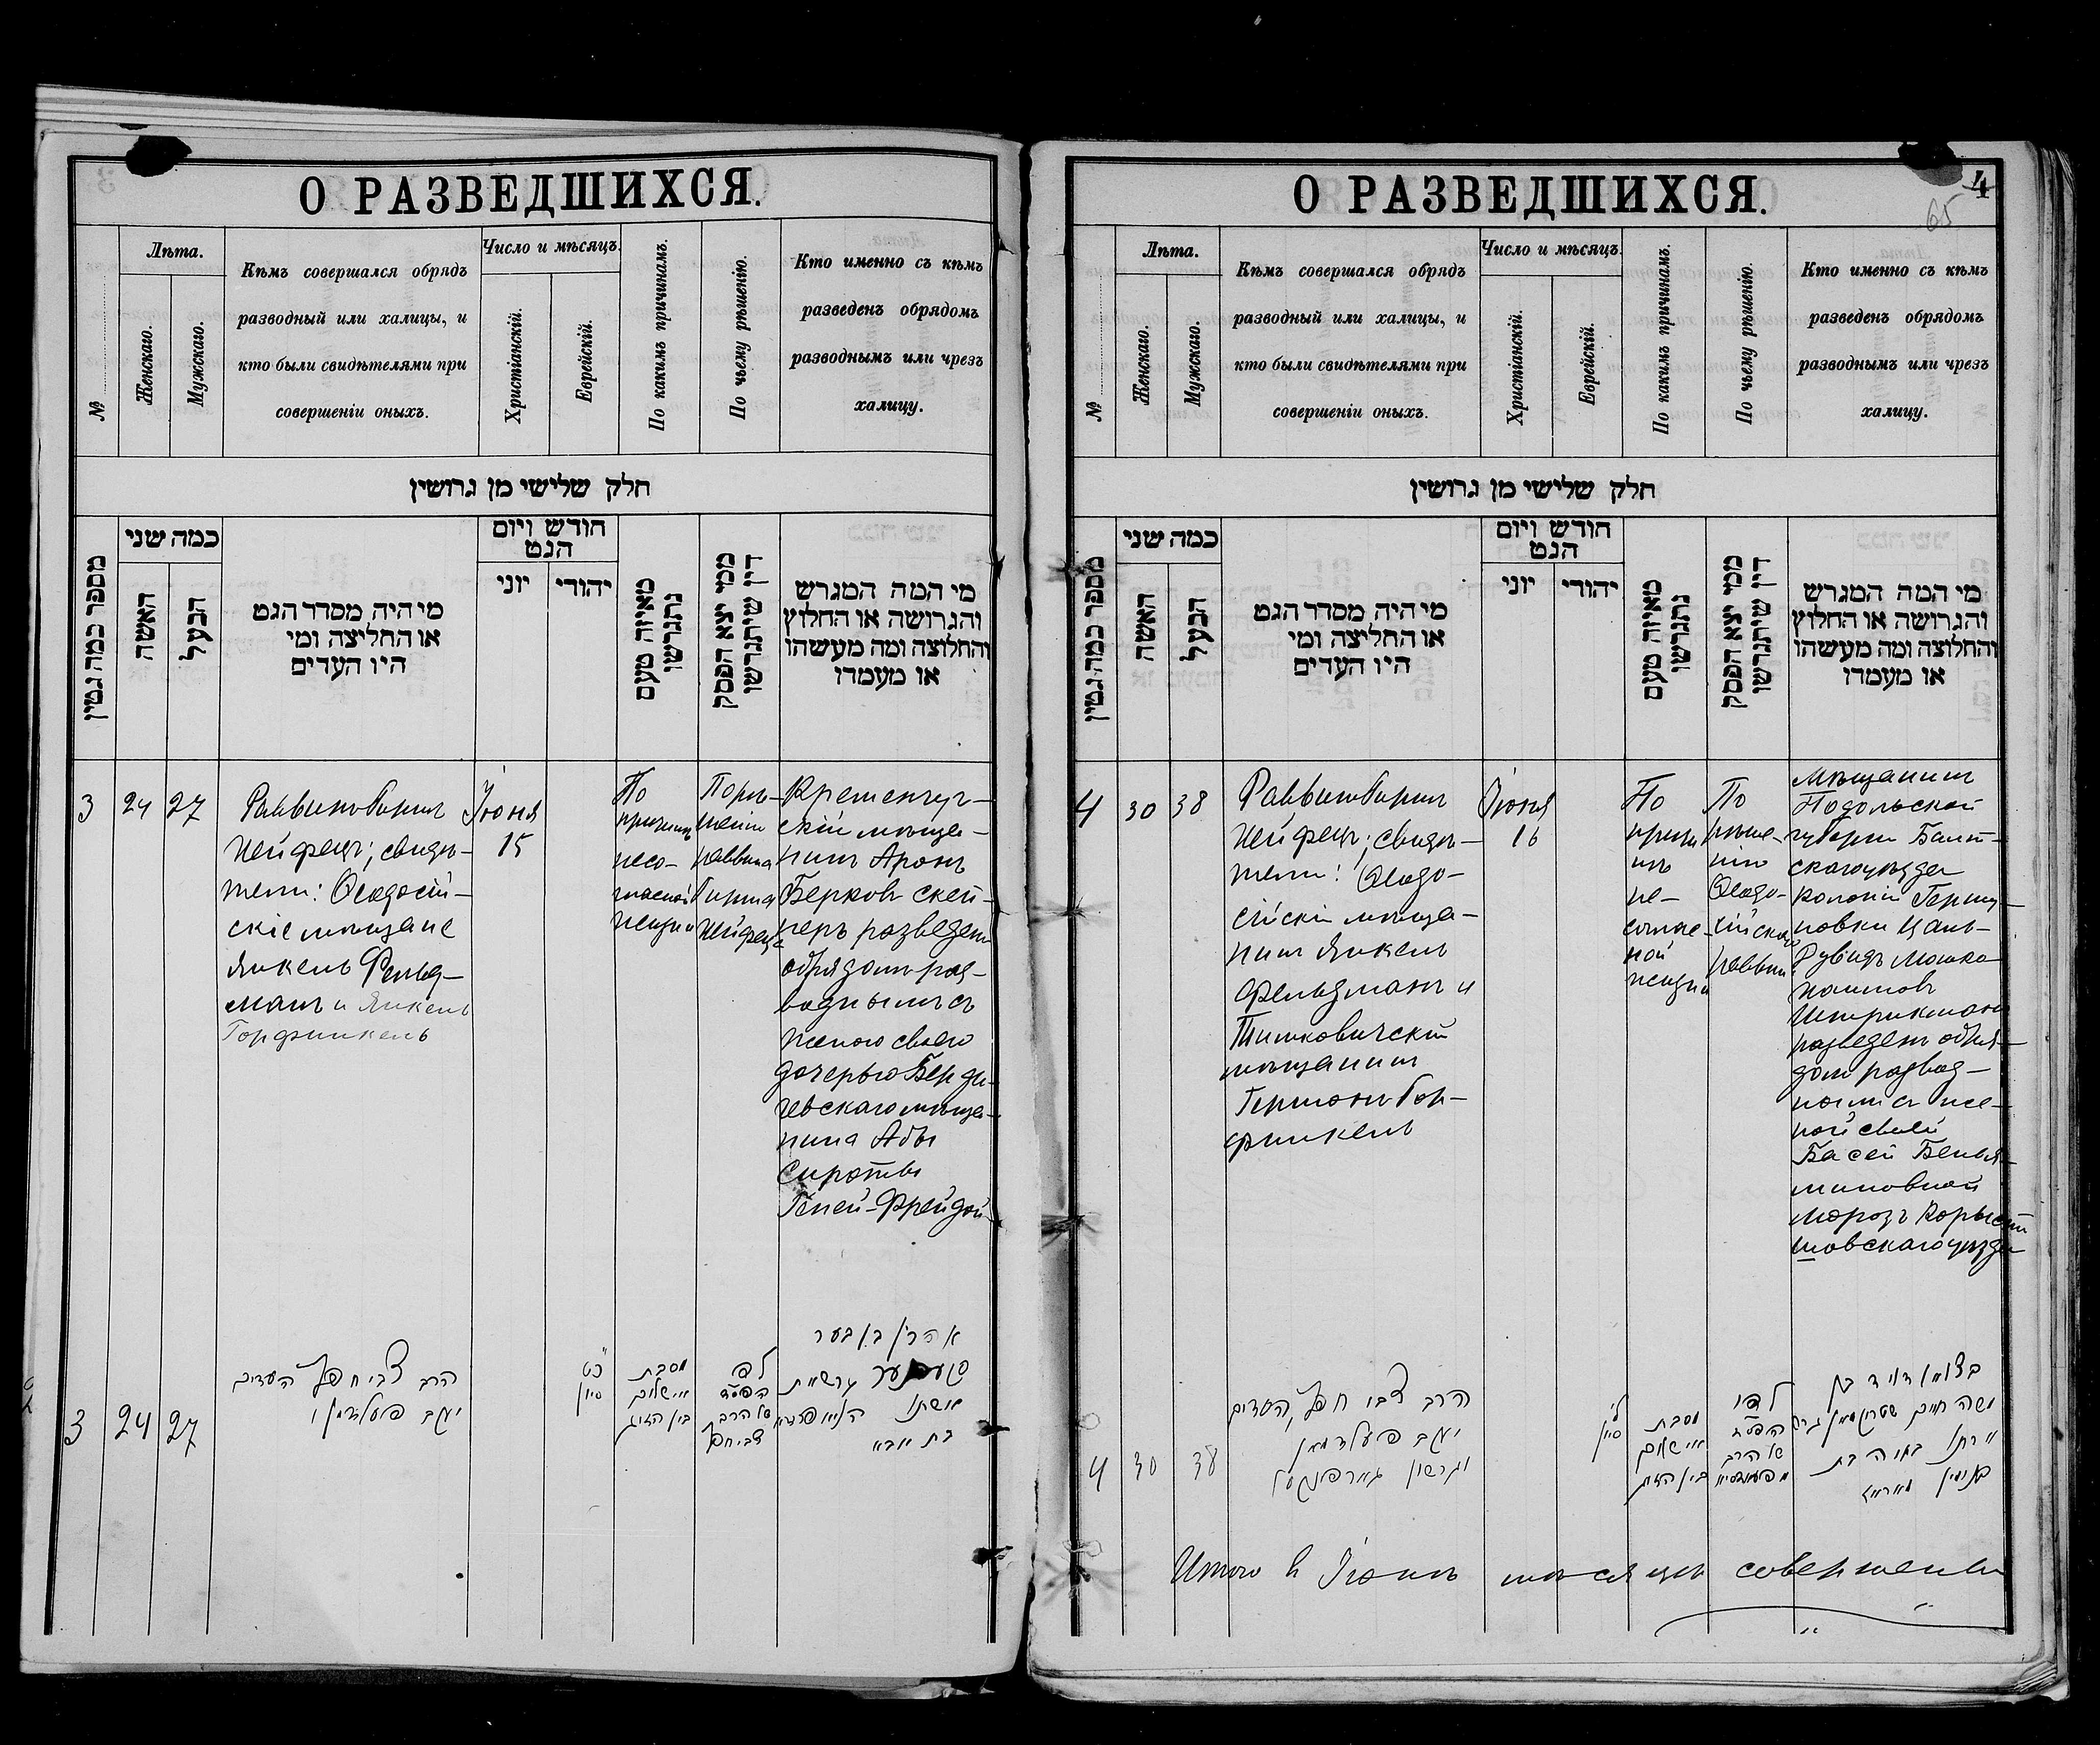 О РАЗВЕДШИХСЯ.
№
Лѣта.
Женскаго.
Мужскаго.
Кѣмъ совершался обрядъ
разводный или халицы, и
кто были свидѣтелями при
совершеніи оныхъ.
Число и мѣсяцъ.
Христіанскій.
Еврейскій.
По какимъ причинамъ.
По чьему рѣшенію.
Кто именно съ кѣмъ
разведенъ обрядомъ
разводнымъ или чрезъ
халицу.
חלק שלישי מן גרושין
מספר כמה גטין
כמה שני
האשה
הבעל
מי היה מסדר הגט
או החליצה ומי
היו העדים
חודש ויום
הגט
יוני
יהודי
מאיזה טעם
נתגרשו
ממי יצא הפסק
דין שיתגרשו
מי המה המגרש
והגרושה או החלוץ
והחלוצה ומה מעשהו
או מעמדו
3
24
27
Раввинъ Гиршъ
Хейфецъ; свидѣ-
тели: Ѳеодосій-
скіе мѣщане
Янкель Фельд-
манъ и Янкель
Горфинкель
Іюня
15
По
причинѣ
несо-
гласной
жизни
По рѣ-
шенію
раввина
Гирша
Хейфеца
Кременчуг-
скій мѣща-
нинъ Аронъ
Берковъ
разведенъ
обрядомъ раз-
воднымъ съ
женою своею
дочерью Берди-
чевскаго мѣща-
нина Абы
Сироты
Геней-Фрейдой
אהרן בן בער
גרשות
אשתו
בת אבא
לפי
הפסד
של הרב
צבי חפץ
מסבת
אי שלום
בין הזוג
כט
סיון
הרב צבי חפץ העדים
יעקב פעלדמן ו
3
24
27
О РАЗВЕДШИХСЯ.
4
65
№
Лѣта.
Женскаго.
Мужскаго.
Кѣмъ совершался обрядъ
разводный или халицы, и
кто были свидѣтелями при
совершеніи оныхъ.
Число и мѣсяцъ.
Христіанскій.
Еврейскій.
По какимъ причинамъ.
По чьему рѣшенію.
Кто именно съ кѣмъ
разведенъ обрядомъ
разводнымъ или чрезъ
халицу.
חלק שלישי מן גרושין
מספר כמה גטין
כמה שני
האשה
הבעל
מי היה מסדר הגט
או החליצה ומי
היו העדים
חודש ויום
הגט
יוני
יהודי
מאיזה טעם
נתגרשו
ממי יצא הפסק
דין שיתגרשו
מי המה המגרש
והגרושה או החלוץ
והחלוצה ומה מעשהו
או מעמדו
4
30
38
Раввинъ Гиршъ
Хейфецъ; свидѣ-
тели: Ѳеодо-
сійскій мѣща-
нинъ Янкель
Фельдманъ и
мѣщанинъ
Гершонъ Гор-
финкель
Іюня
16
По
причи
нѣ
не-
соглас-
ной
жизни
По
рѣше-
нію
Ѳеодо-
сійскаго
раввин
Мѣщанинъ
Подольской
губерніи Балт-
скаго уѣзда
колоніи
Мошко
Хаимовъ
Штрикманъ
разведенъ обря-
домъ развод-
нымъ съ же-
ной своей
Басей Бенья-
миновной
Морозъ
уѣзда
משה חיים שטריקמאן
בת
בנימין מאראז
לפי
של הרב
מסבת
אי שלום
בין הזוג
ל
סיון
הרב צבי חפץ, העדים
יעקב פעלדמאן
וגרשון גארפינקעל
4
30
38
Итого въ Іюнѣ мѣсяцѣ совершены